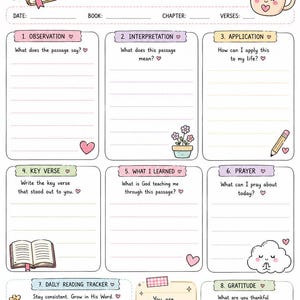 DATE: BOOK: CHAPTER: VERSES:
1. OBSERVATION
What does the passage say?
2. INTERPRETATION
What does this passage
mean?
3. APPLICATION
How can I apply this
to my life?
4. KEY VERSE
Write the key verse
that stood out to you.
5. WHAT I LEARNED
What is God teaching me
through this passage?
6. PRAYER
What can I pray about
today?
7. DAILY READING TRACKER
Stay consistent. Grow in His Word.
You are
8. GRATITUDE
What are you thankful